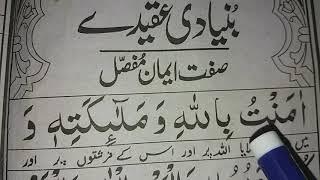 بنیادی عقیدے
صفت ایمان مفصّل
اٰمَنْتُ بِاللهِ وَ مَلٰٓئِكَتِهٖ وَ
میں ایمان لایا اللہ پر اور اس کے فرشتوں پر اور